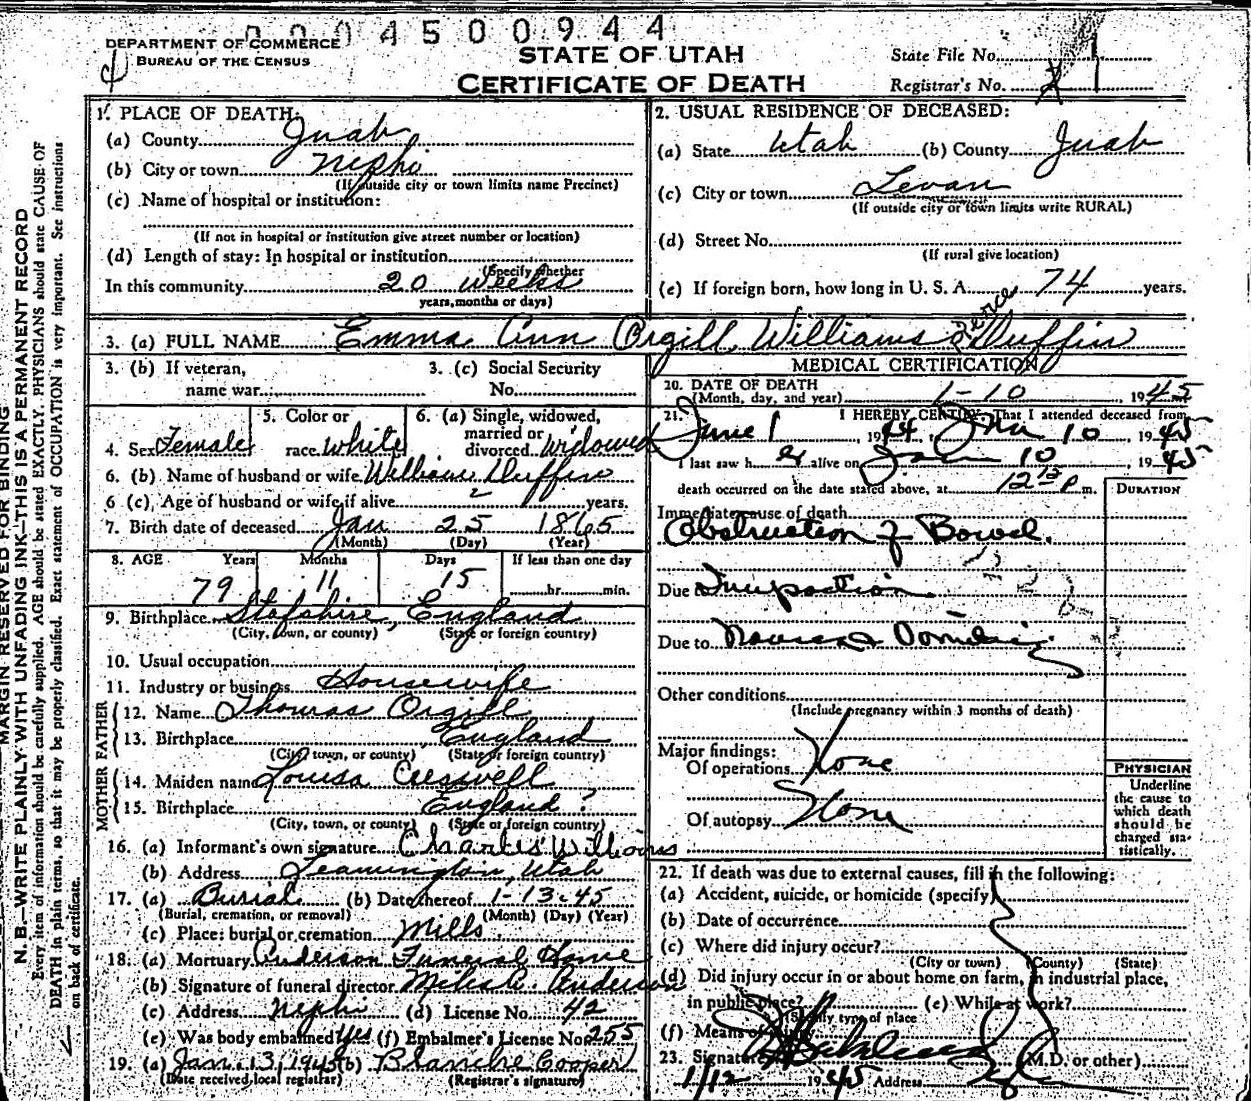 0004500944
DEPARTMENT OF COMMERCE
BUREAU OF THE CENSUS
STATE OF UTAH
CERTIFICATE OF DEATH
State File No.
Registrar's No. 1
MARGIN RESERVED FOR BINDING
N. B.—WRITE PLAINLY WITH UNFADING INK—THIS IS A PERMANENT RECORD
Every item of information should be carefully supplied. AGE should be stated EXACTLY. PHYSICIANS should state CAUSE OF
DEATH in plain terms, so that it may be properly classified. Exact statement of OCCUPATION is very important. See instructions
on back of certificate.
1. PLACE OF DEATH:
(a) County Juab
(b) City or town Nephi
(If outside city or town limits name Precinct)
(c) Name of hospital or institution:
(If not in hospital or institution give street number or location)
(d) Length of stay: In hospital or institution
(Specify whether
In this community 20 weeks
years, months or days)
2. USUAL RESIDENCE OF DECEASED:
(a) State Utah (b) County Juab
(c) City or town Levan
(If outside city or town limits write RURAL)
(d) Street No.
(If rural give location)
(e) If foreign born, how long in U. S. A. 74 years.
3. (a) FULL NAME Emma Ann Orgill Williams Pierce Duffin
3. (b) If veteran,
name war
3. (c) Social Security
No.
4. Sex Female
5. Color or
race White
6. (a) Single, widowed,
married or
divorced Widowed
6. (b) Name of husband or wife William Duffin
6 (c). Age of husband or wife, if alive years.
7. Birth date of deceased Jan 25 1865
(Month) (Day) (Year)
8. AGE Years Months Days If less than one day
79 11 15 hr. min.
9. Birthplace Stafshire, England
(City, town, or county) (State or foreign country)
10. Usual occupation
11. Industry or business Housewife
FATHER
12. Name Thomas Orgill
13. Birthplace England
(City, town, or county) (State or foreign country)
MOTHER
14. Maiden name Louisa Cresswell
15. Birthplace England ?
(City, town, or county) (State or foreign country)
16. (a) Informant's own signature Charles Williams
(b) Address Leamington, Utah
17. (a) Burial (b) Date thereof 1-13-45
(Burial, cremation, or removal) (Month) (Day) (Year)
(c) Place: burial or cremation Mills
18. (a) Mortuary Anderson Funeral Home
(b) Signature of funeral director Miles A. Anderson
(c) Address Nephi (d) License No. 42
(e) Was body embalmed yes (f) Embalmer's License No. 255
19. (a) Jan. 13, 1945 (b) Blanche Cooper
(Date received local registrar) (Registrar's signature)
MEDICAL CERTIFICATION
20. DATE OF DEATH
(Month, day, and year) 1-10 1945
21. I HEREBY CERTIFY, That I attended deceased from
June 1, 1944, Jan 10, 1945
I last saw her alive on Jan 10, 1945
death occurred on the date stated above, at 12 15 P m.
DURATION
Immediate cause of death
Obstruction of Bowel.
Due to Impaction
Due to Nausea & Vomiting
Other conditions
(Include pregnancy within 3 months of death)
Major findings:
Of operations None
Of autopsy None
PHYSICIAN
Underline
the cause to
which death
should be
charged sta-
tistically.
22. If death was due to external causes, fill in the following:
(a) Accident, suicide, or homicide (specify)
(b) Date of occurrence
(c) Where did injury occur?
(City or town) (County) (State)
(d) Did injury occur in or about home on farm, in industrial place,
in public place? (e) While at work?
(Specify type of place
(f) Means of injury
23. Signature (M.D. or other)
1/12 1945 Address